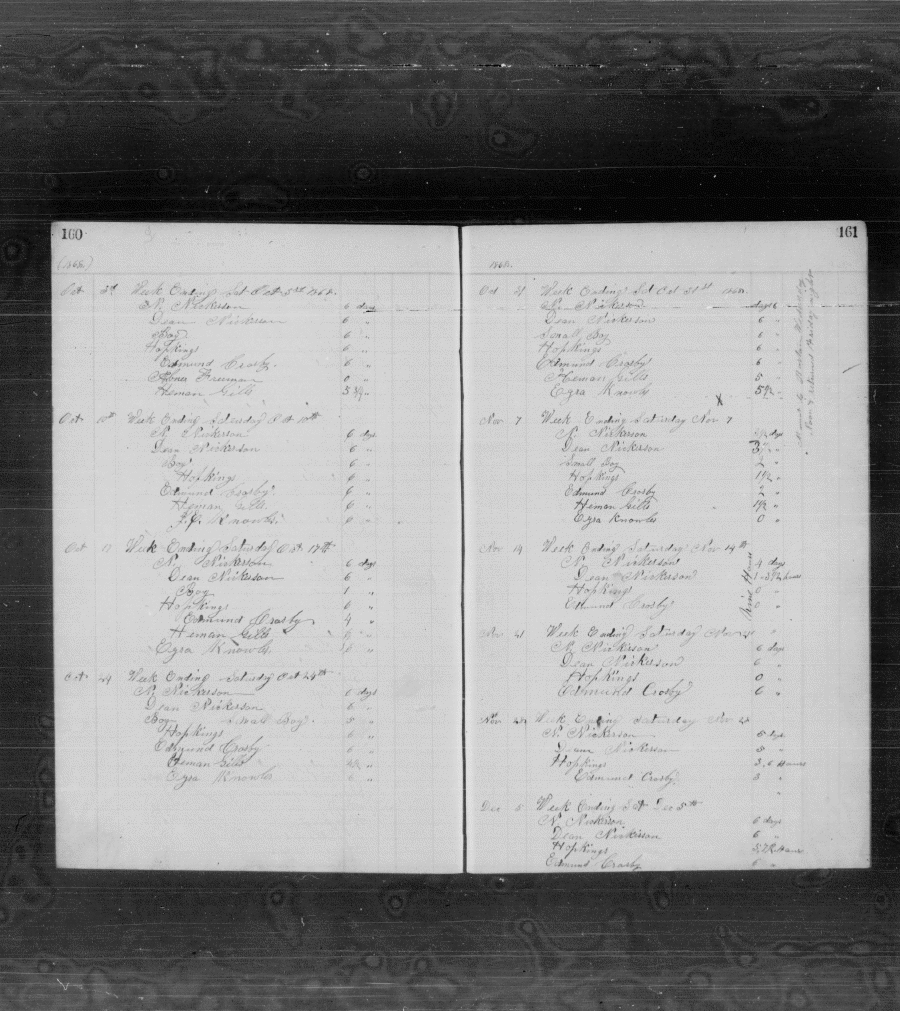 160
(1868)
Oct 3d Week Ending Sat Oct 3rd 1868.
N. Nickerson 6 days
Dean Nickerson 6 "
Boy 6 "
Hopkings 6 "
Edmund Crosby 6 "
Abner Freeman 0 "
Heman Gills 5 3/4 "
Oct 10th Week Ending Saturday Oct 10th
N. Nickerson 6 days
Dean Nickerson 6 "
Boy 6 "
Hopkings 6 "
Edmund Crosby 6 "
Heman Gills 6 "
Knowls "
Oct 17 Week Ending Saturday Oct 17th
N. Nickerson 6 days
Dean Nickerson 6 "
Boy 1 "
Hopkings 6 "
Edmund Crosby 4 "
Heman Gills "
Ezra Knowls "
Oct 24 Week Ending Saturday Oct 24th
N. Nickerson 6 days
Dean Nickerson 6 "
Boy Small Boy 5 "
Hopkings 6 "
Edmund Crosby 6 "
Heman Gills "
Ezra Knowls 6 "
161
1868.
Oct 31 Week Ending Sat Oct 31st 1868.
N. Nickerson days 6
Dean Nickerson 6 "
Small Boy 6 "
Hopkings 6 "
Edmund Crosby 6 "
Heman Gills 5 "
Ezra Knowls 5 1/2 "
X
Nov 7 Week Ending Saturday Nov 7
N. Nickerson days
Dean Nickerson 3 "
Small Boy 2 "
Hopkings 1 1/2 "
Edmund Crosby 2 "
Heman Gills 1 1/2 "
Ezra Knowls 0 "
Nov 14 Week Ending Saturday Nov 14th
N. Nickerson 4 days
Dean Nickerson hours
Hopkings 0 "
Edmund Crosby 0 "
Nov 21 Week Ending Saturday Nov 21
N. Nickerson 6 days
Dean Nickerson 6 "
Hopkings 0 "
Edmund Crosby 6 "
Nov 28 Week Ending Saturday Nov 28
N. Nickerson 5 days
Dean Nickerson 5 "
Hopkings 3, 6 Hours
Edmund Crosby "
Dec 5 Week Ending Sat Dec 5th
N. Nickerson 6 days
Dean Nickerson 6 "
Hopkings Hours
Edmund Crosby 6 "